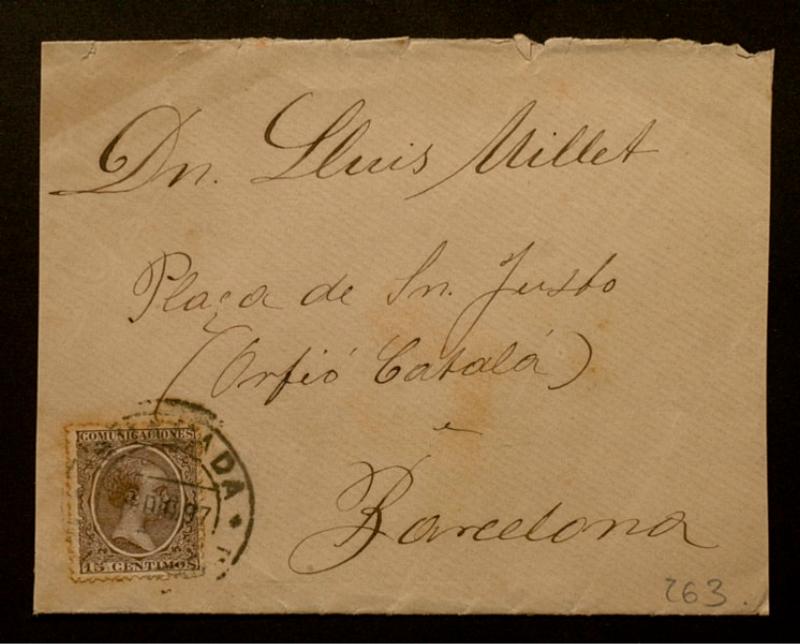 Dn. Lluis Millet
Plaça de Sn. Justo
(Orfió Catalá)
Barcelona
COMUNICACIONES
15 CENTIMOS
ADA
DIC 97
263